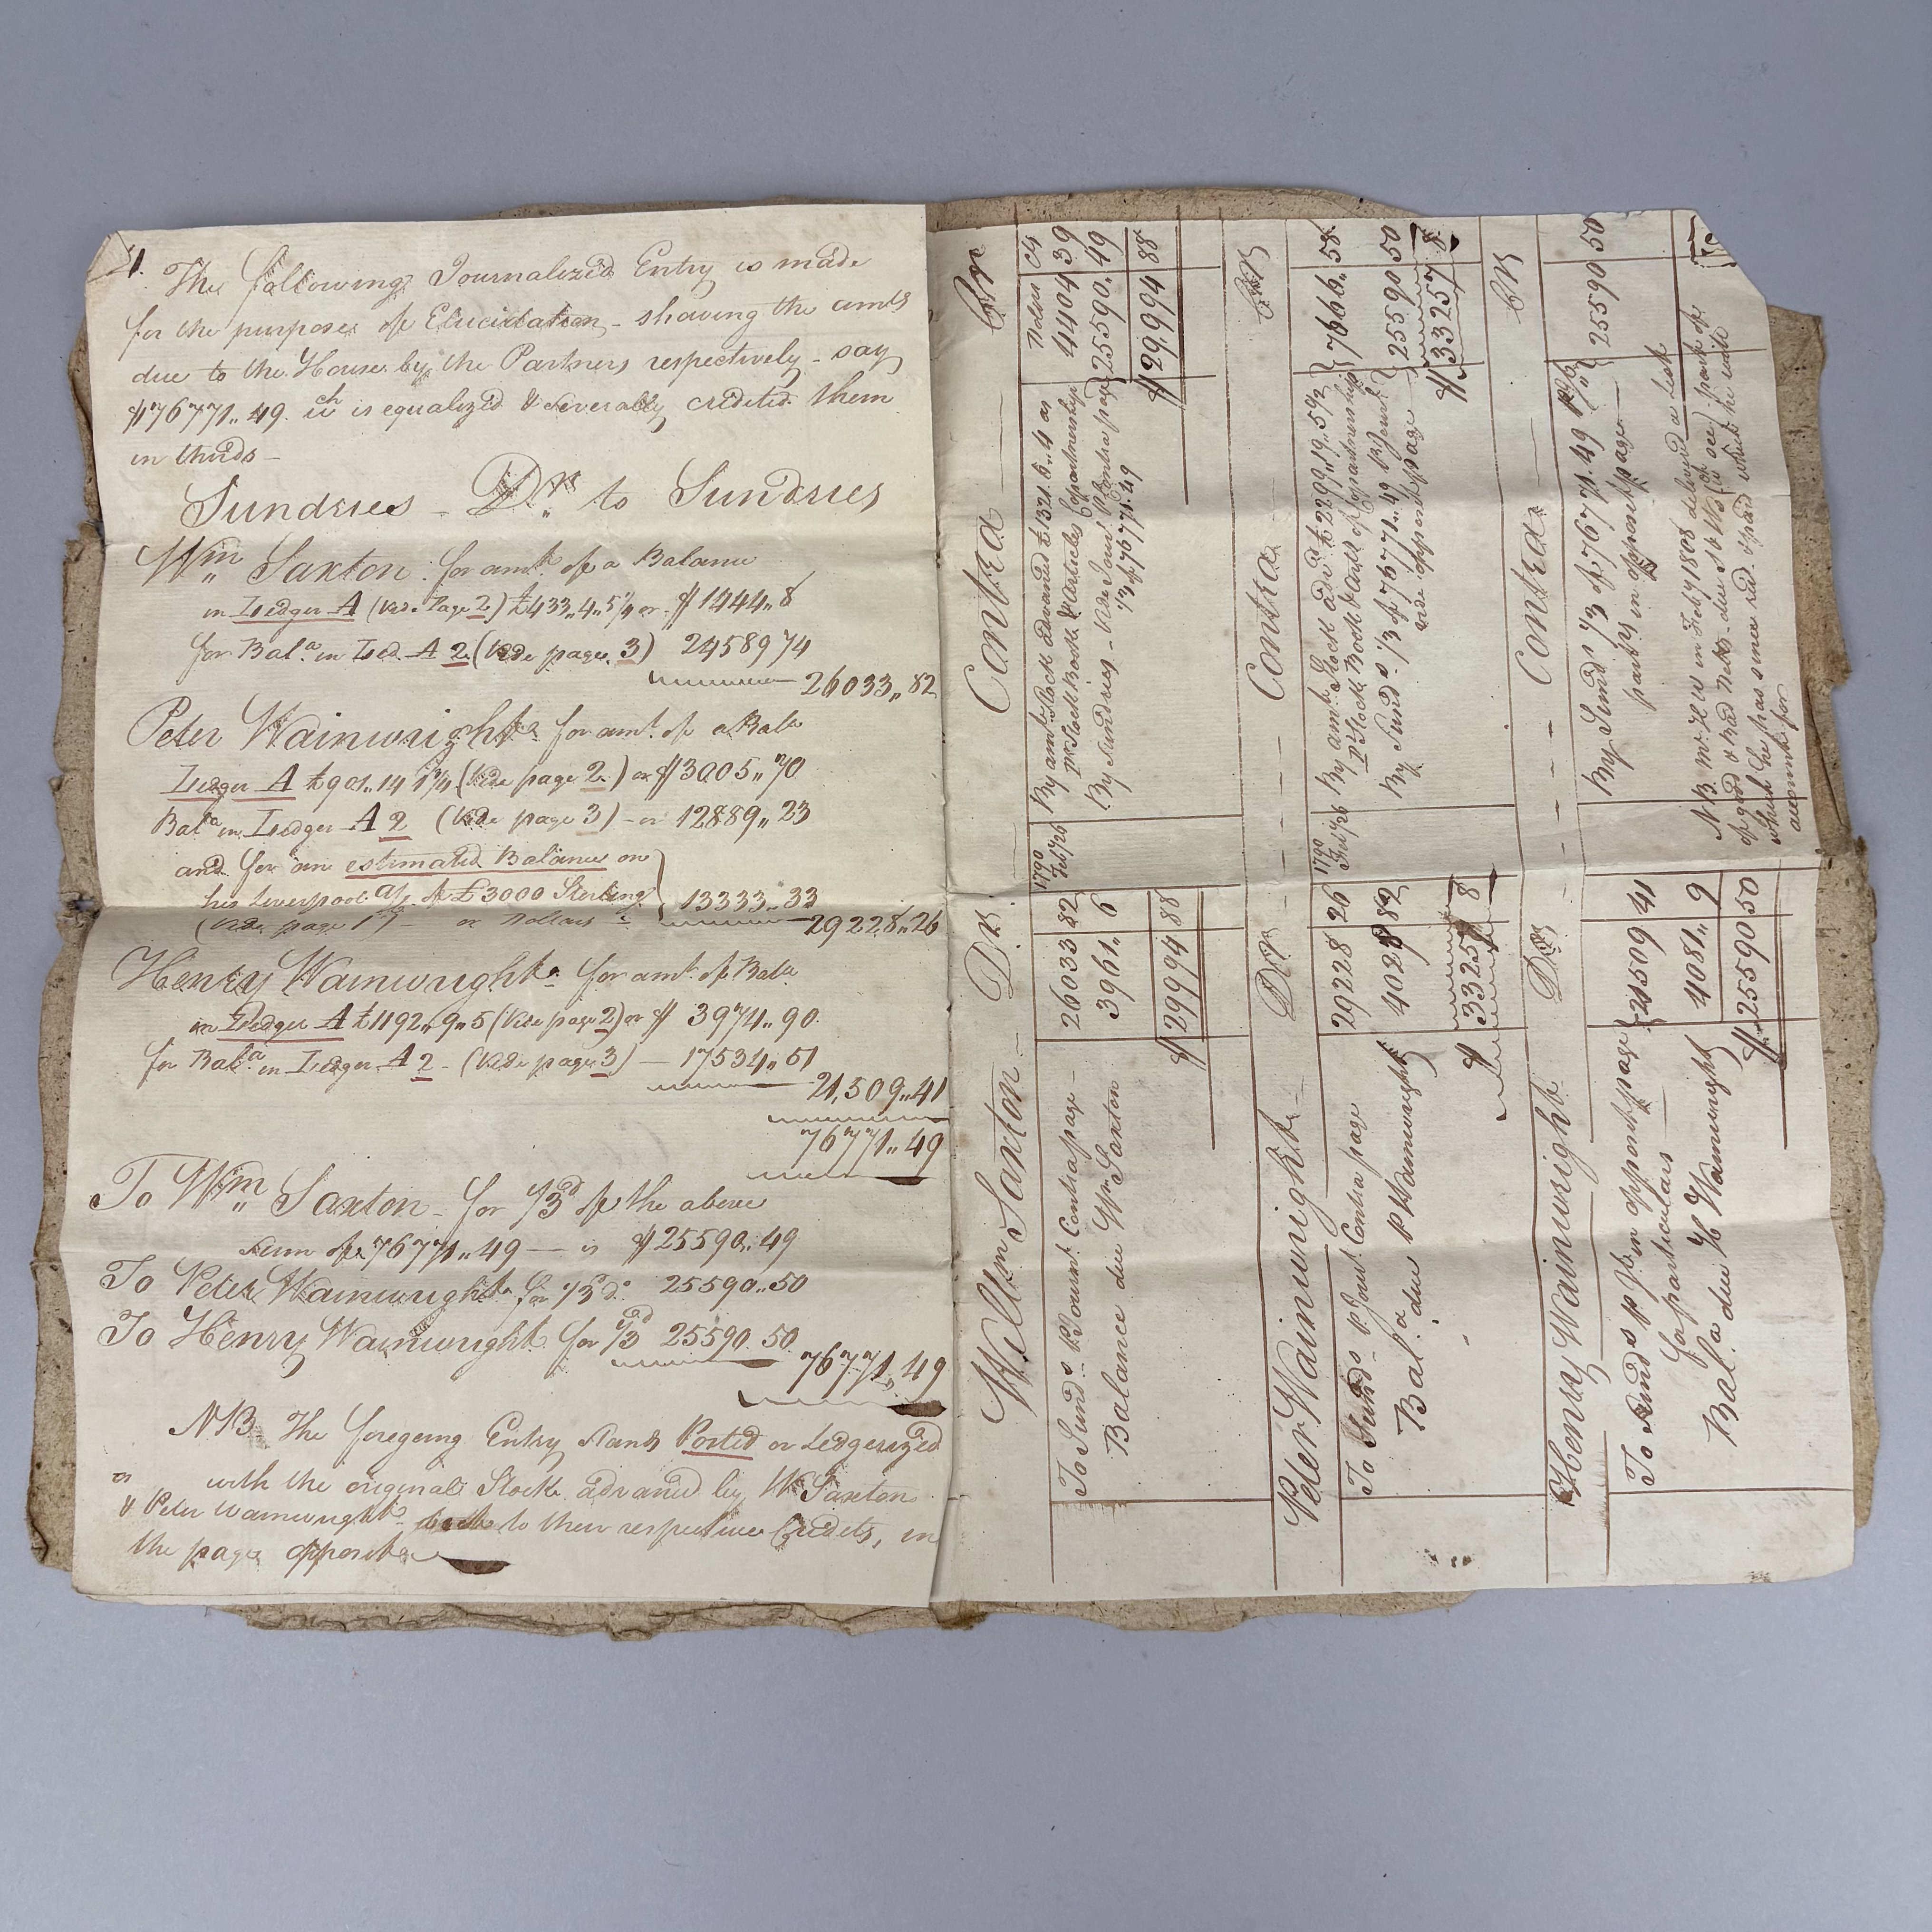 4.
The following Journalized Entry is made
for the purpose of Elucidation - shewing the amts
due to the House by the Partners respectively - say
$76771..49. wch is equalized & severally credited them
in thirds -
Sundries - Drs to Sundries
Wm Saxton for amt. of a Balance
in Ledger A (vide Page 2) £433..4..5¼ or $1444..8
for Bala. in Led. A 2 (vide page 3) 24589 74
26033..82
Peter Wainwright for amt. of a Bala
Ledger A £901..14 1¾ (vide page 2) or $3005..70
Bala in Ledger A 2 (vide page 3) - or 12889..23
and for an estimated Balance on
his Liverpool a/c of £3000 Sterling
(vide page 1) - or Dollars - 13333..33
29228..26
Henry Wainwright for amt. of Bala
in Ledger A £1192..9..5 (vide page 2) or $ 3974..90.
for Bala. in Ledger A 2 - (vide page 3) - 17534..51
21,509..41
76771..49
To Wm Saxton - for 1/3d of the above
sum of 76771..49 — is $25590..49
To Peter Wainwright for 1/3 do. 25590..50
To Henry Wainwright for 1/3d 25590.50
76771,49
NB The foregoing Entry stands Posted or Ledgerized
with the original Stock advanced by Wm Saxton
& Peter Wainwright to their respective Credits, in
the page opposite
Willm Saxton - Dr.
To Sunds. P Journl. Contra page - 26033 82
Balance due Wm Saxton 3961.. 6
$ 29994 88
Contra Cr
Dolrs Cts
1790 Feby 26 By amt. Stock advanced £1321..6..4 as
Pr Stock Book & Articles Copartnership 4404 39
By Sundries - vide Jourl. P Contra page 25590.. 49
1/3 of 76771..49
$ 29,994 88
Peter Wainwright - Dr
To Sunds. P. Jourl. Contra page 29228 26
Bala. due P Wainwright 4028 82
$ 33257 8
Contra CR
1790 Feby 26 By amt. Stock advd. £2299..19..5½
Pr Stock Book & Arts. of Copartnership 7666.. 58
By Sunds. 1/3 of 76771..49 P Journl
vide opposite page 25590 50
$ 33257 8
Henry Wainwright Dr
To Sunds P Jl. in opposite page
for particulars 21509 41
Bala. due H Wainwright 4081.. 9
$ 25590 50
Contra CR
By Sunds 1/3 of 76771.49
partrs in opposite page 25590 50
NB. Mr. H W in Feby 1808 delivered a List
of good & bad Debts due St W & Co
which he has since recd. & paid which he will
account for